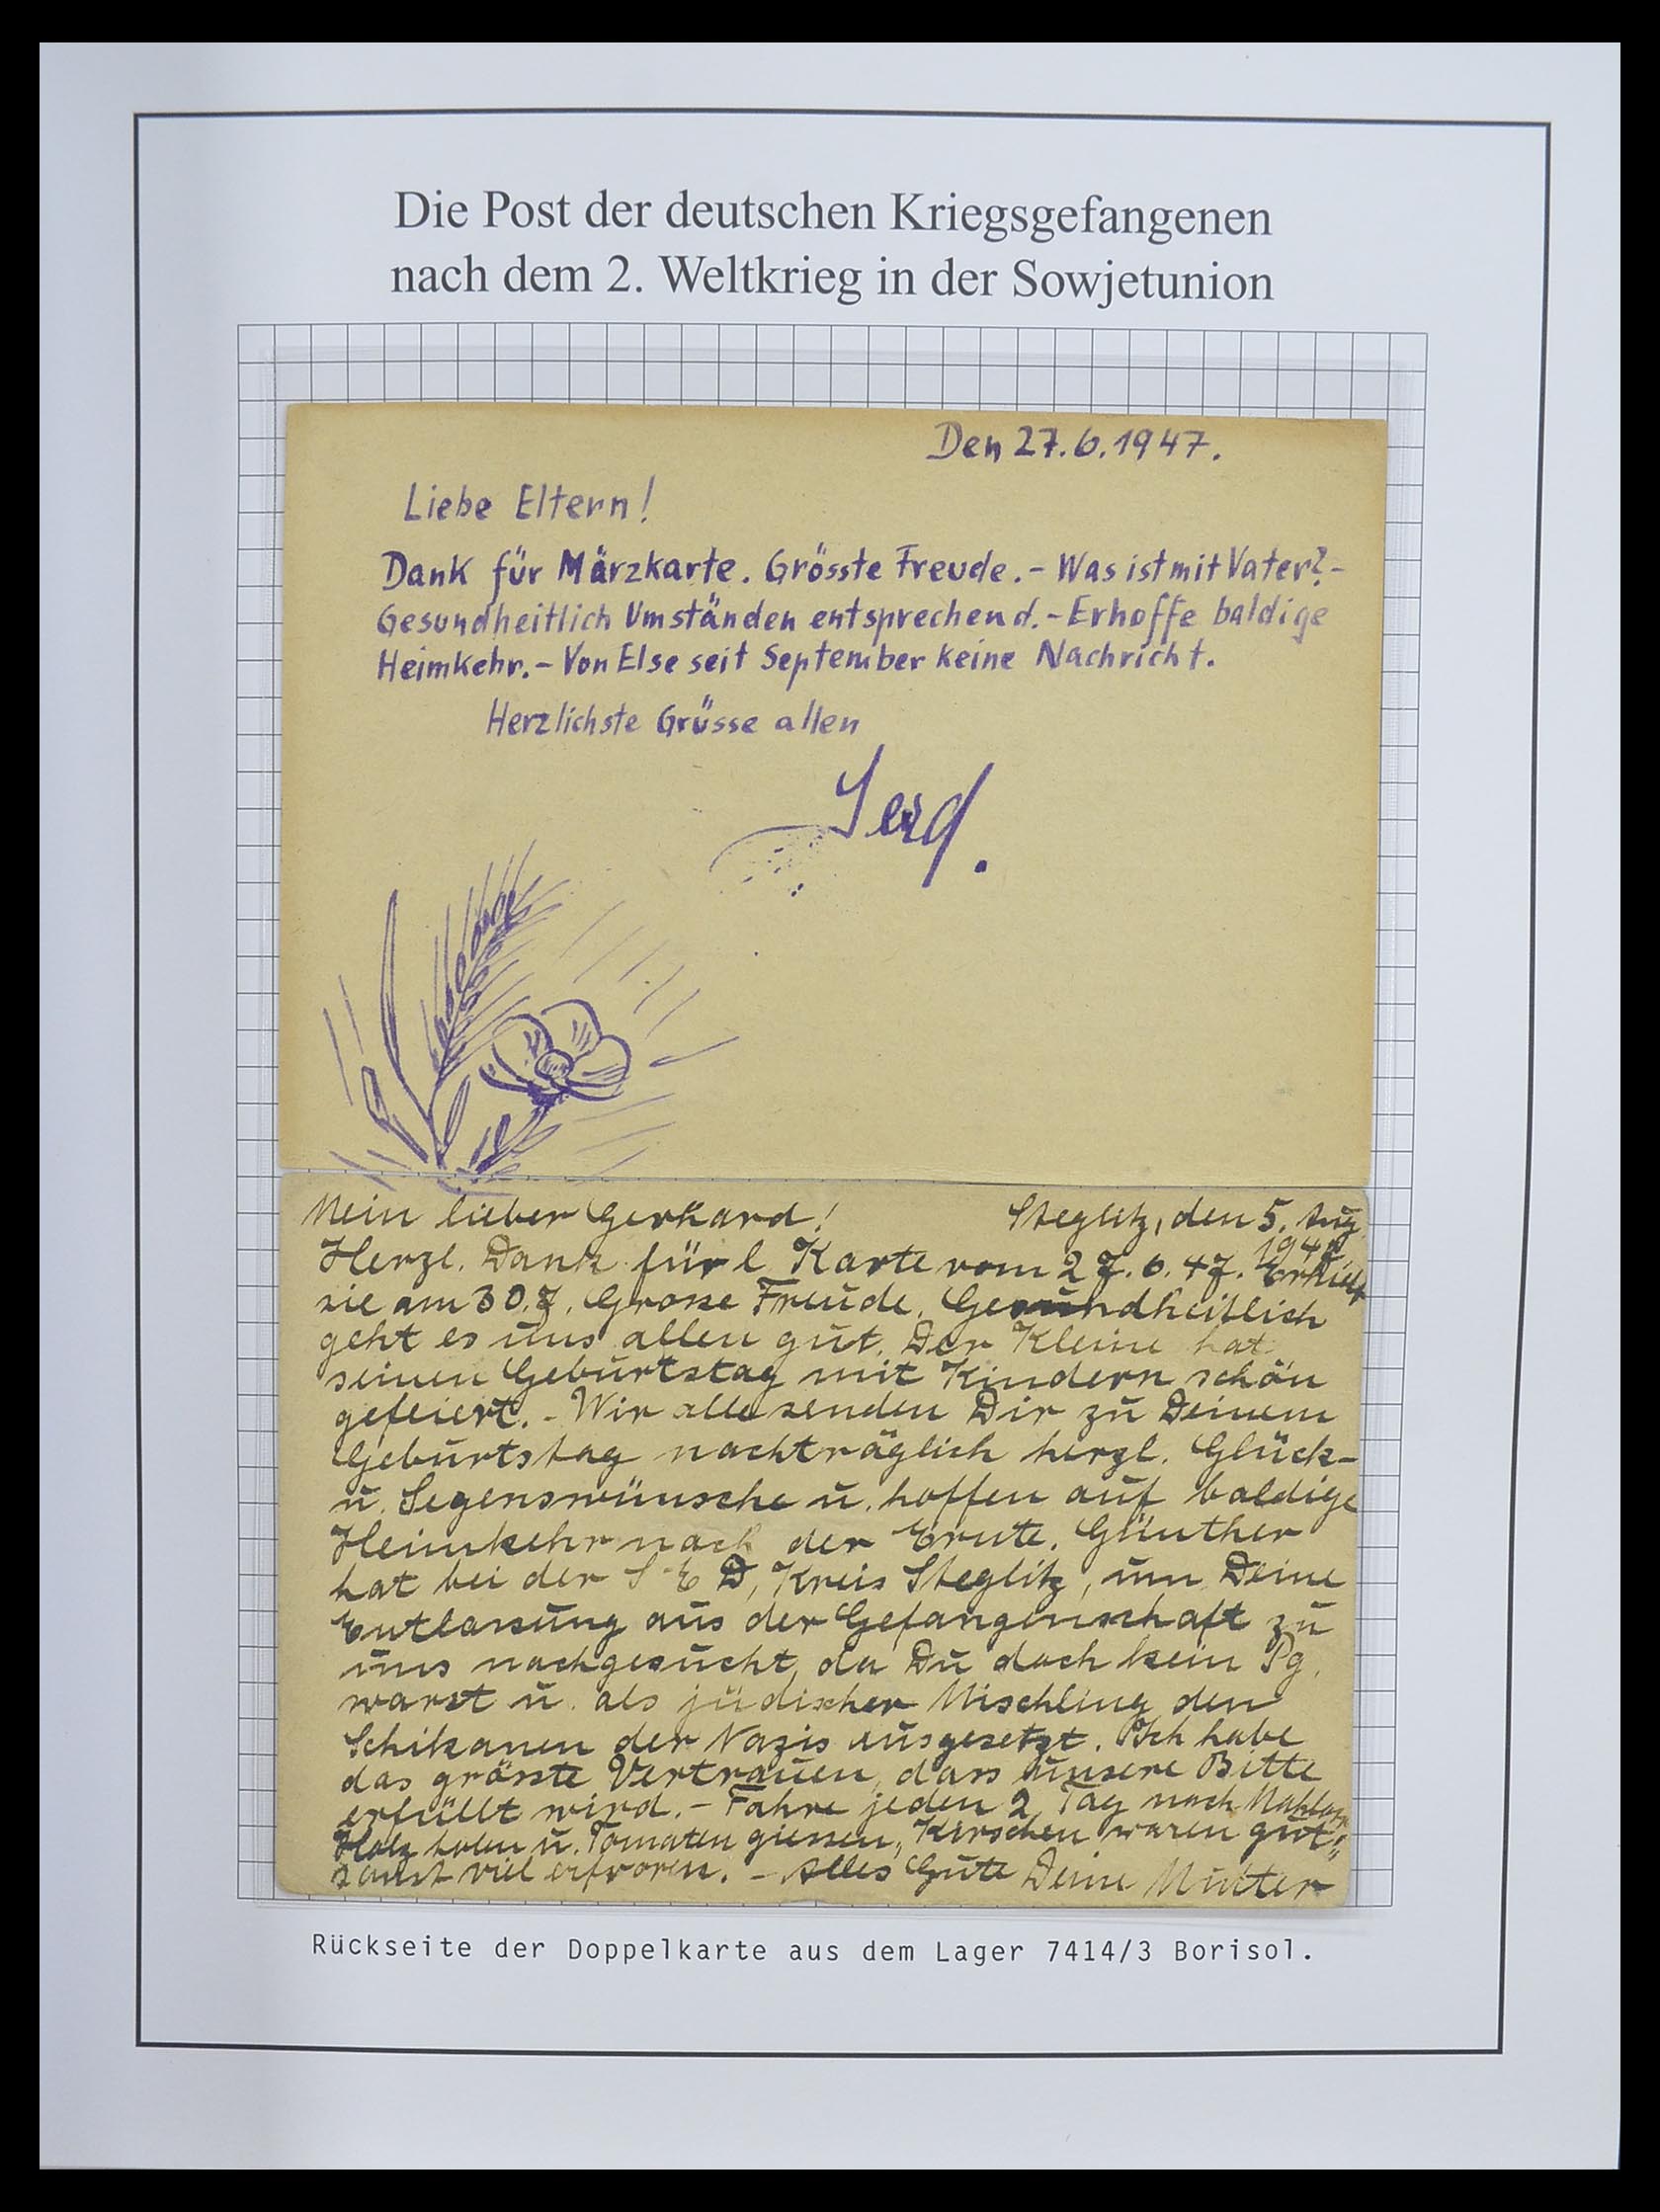 Die Post der deutschen Kriegsgefangenen
nach dem 2. Weltkrieg in der Sowjetunion
Den 27.6.1947.
Liebe Eltern!
Dank für Märzkarte. Grösste Freude. - Was ist mit Vater? -
Gesundheitlich Umständen entsprechend. - Erhoffe baldige
Heimkehr. - Von Else seit September keine Nachricht.
Herzlichste Grüsse allen
Gerd.
Mein lieber Gerhard! Steglitz, den 5. Aug.
1947.
Herzl. Dank für l. Karte vom 27.6.47. Erhielt
sie am 30.7. Grosse Freude. Gesundheitlich
geht es uns allen gut. Der Kleine hat
seinen Geburtstag mit Kindern schön
gefeiert. - Wir alle senden Dir zu Deinem
Geburtstag nachträglich herzl. Glück-
u. Segenswünsche u. hoffen auf baldige
Heimkehr nach der Ernte. Günther
hat bei der S E D, Kreis Steglitz, um Deine
Entlassung aus der Gefangenschaft zu
uns nachgesucht, da Du doch kein Pg.
warst u. als jüdischer Mischling den
Schikanen der Nazis ausgesetzt. Ich habe
das grösste Vertrauen, dass unsere Bitte
erfüllt wird. - Fahre jeden 2. Tag nach Mahlow
Holz holen u. Tomaten giessen, Kirschen waren gut,
sonst viel erfroren. - Alles Gute Deine Mutter
Rückseite der Doppelkarte aus dem Lager 7414/3 Borisol.